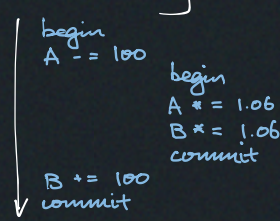 begin
A -= 100
begin
A *= 1.06
B *= 1.06
commit
B += 100
commit